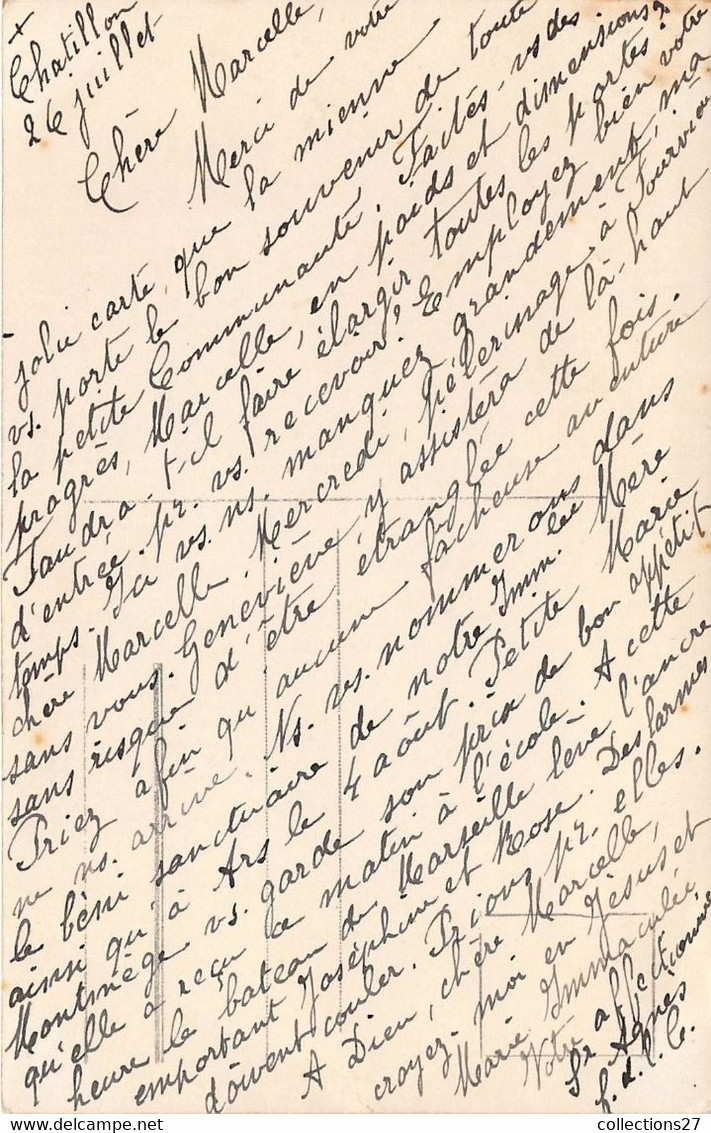 +
Chatillon
26 juillet
Chère Marcelle,
Merci de votre
jolie carte, que la mienne
vs. porte le bon souvenir de toute
la petite Communauté. Faites-vs des
progrès, Marcelle, en poids et dimensions ?
Faudra-t-il faire élargir toutes les portes
d'entrée pr. vs. recevoir ? Employez bien votre
temps. Ici vs. ns. manquez grandement, ma
chère Marcelle. Mercredi, pèlerinage à Fourvière
sans vous. Geneviève y assistera de là-haut
sans risque d'être étranglée cette fois.
Priez afin qu'aucune fâcheuse aventure
ne ns. arrive. Ns. vs. nommerons dans
le béni sanctuaire de notre Imm. lée Mère
ainsi qu'à Ars le 4 août. Petite Marie
vs. garde son prix de bon appétit
qu'elle a reçu ce matin à l'école. A cette
heure le bateau de Marseille lève l'ancre
emportant Joséphine et Rose. Des larmes
doivent couler. Prions pr. elles.
A Dieu, chère Marcelle,
croyez-moi en Jésus et
Marie Immaculée
Votre affectionnée
Sr Agnès